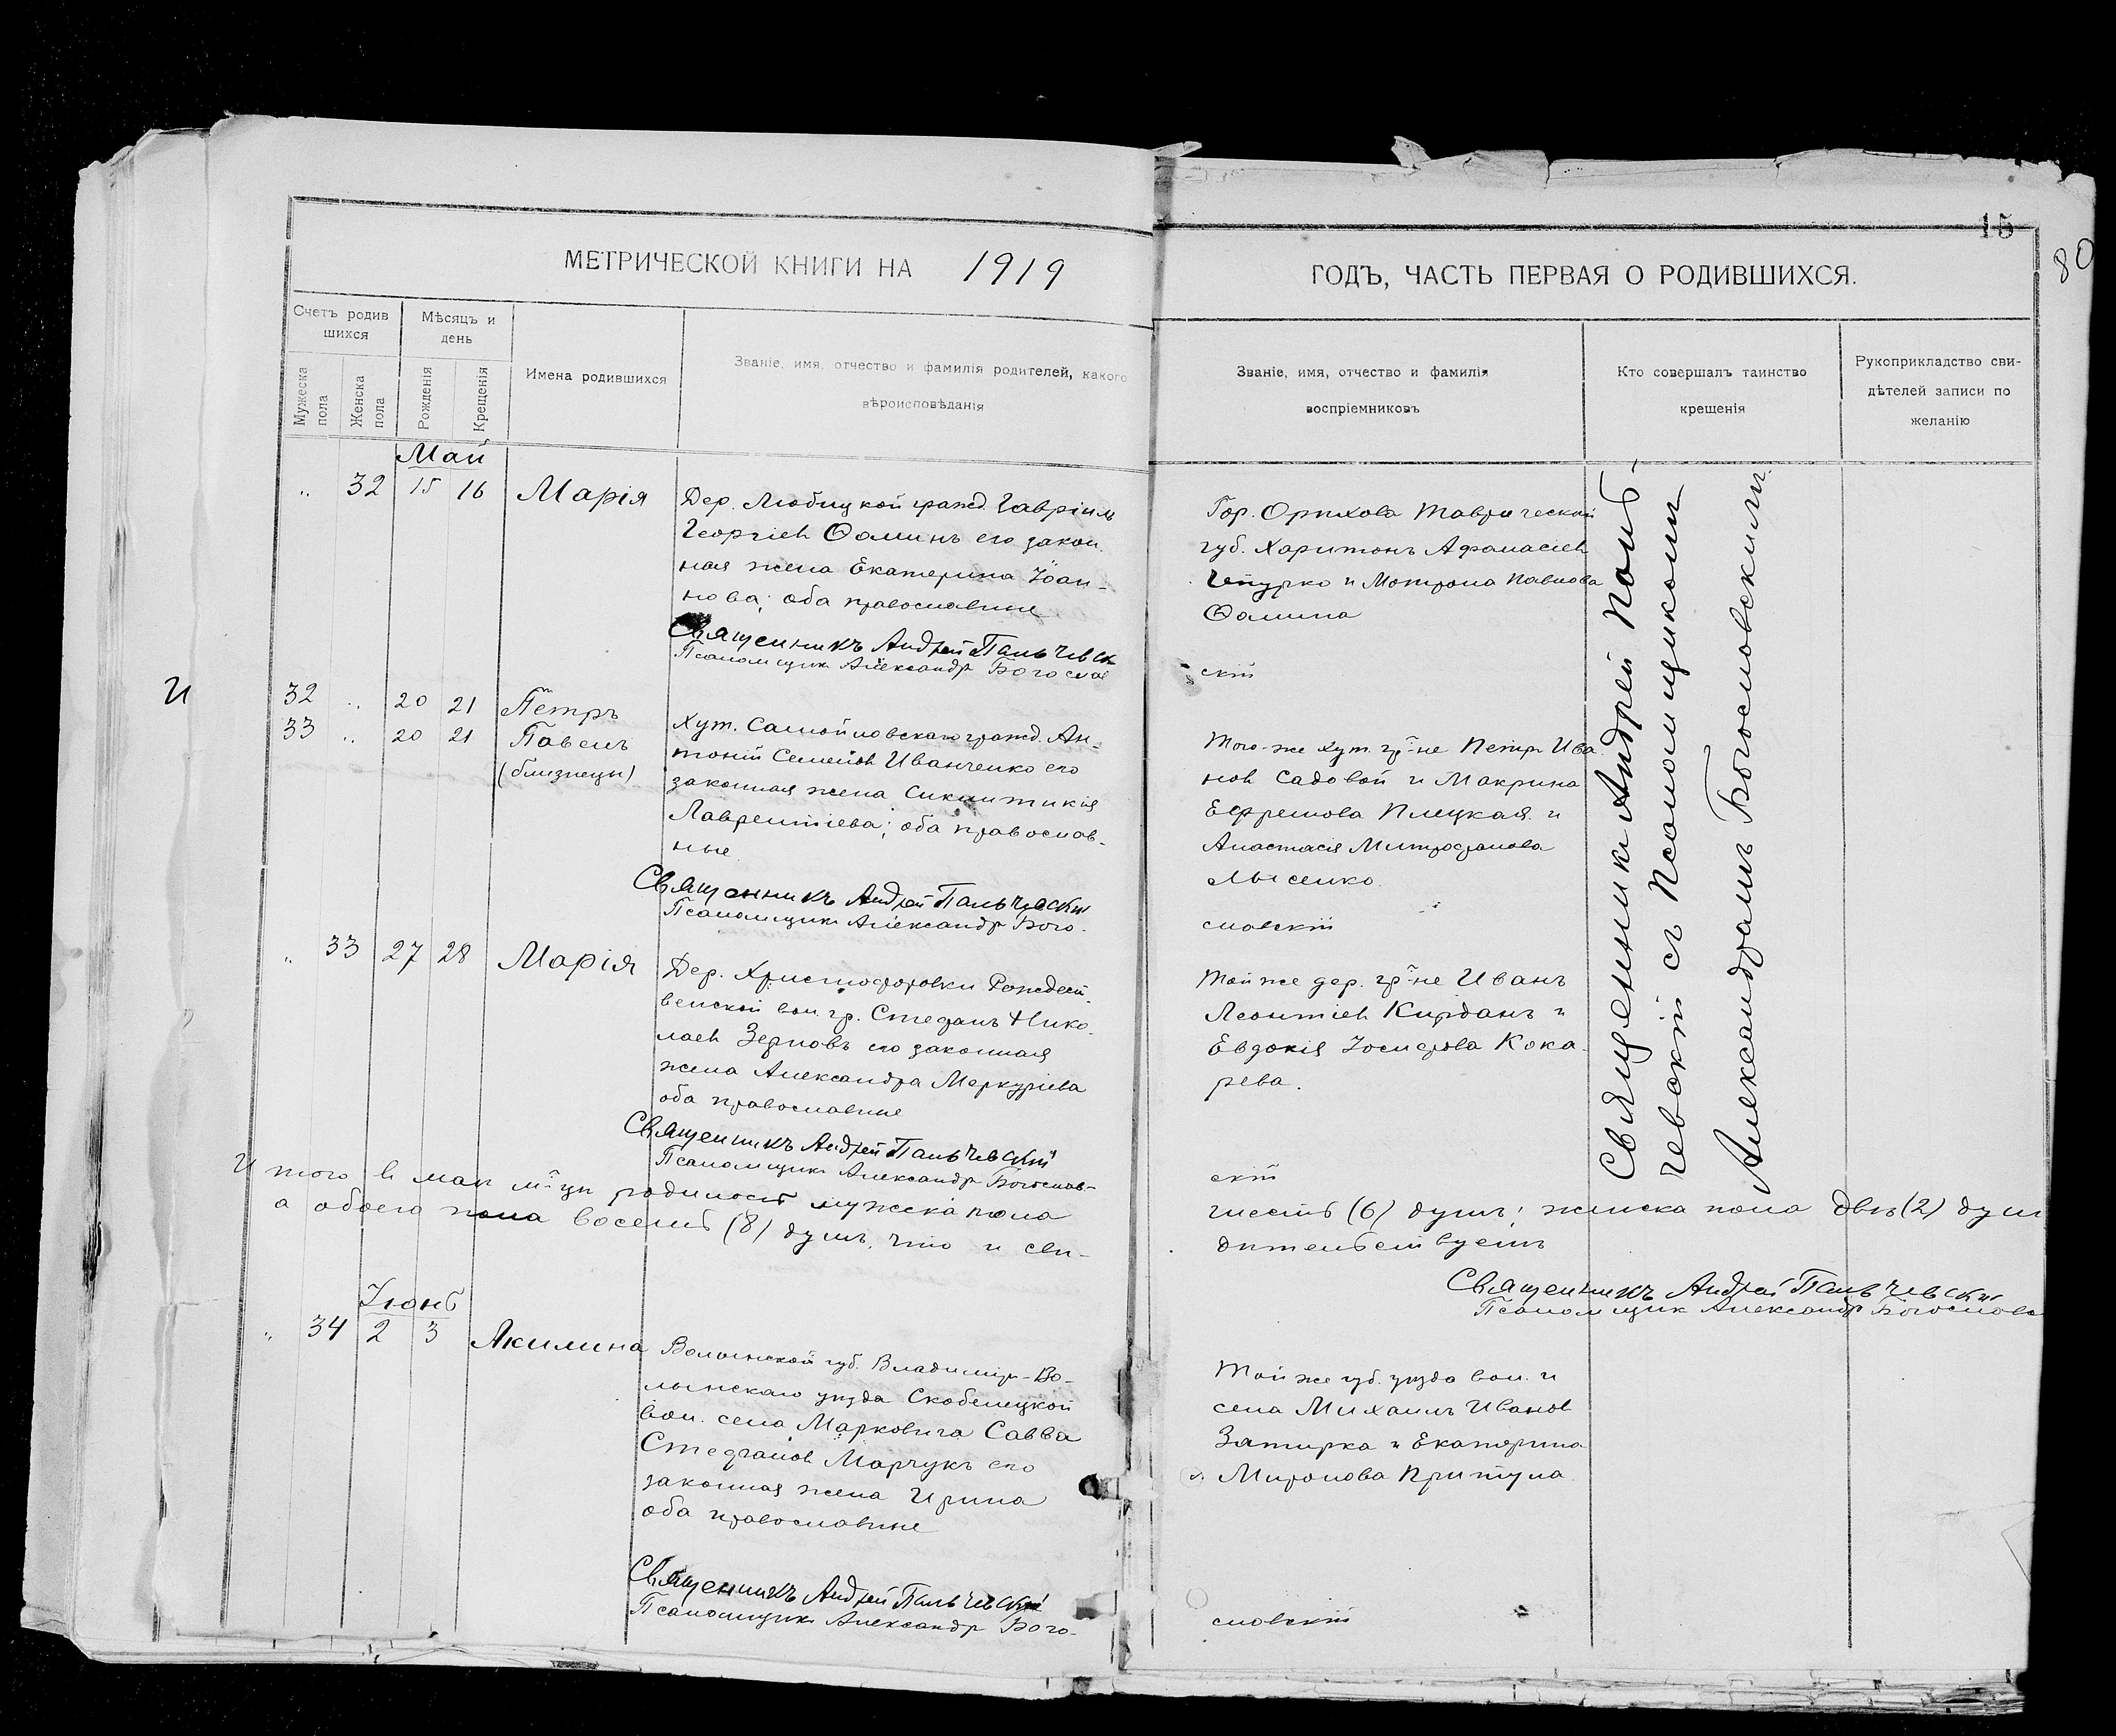 15
80
МЕТРИЧЕСКОЙ КНИГИ НА 1919
ГОДЪ, ЧАСТЬ ПЕРВАЯ О РОДИВШИХСЯ.
Счетъ родив
шихся
Мужеска
пола
Женска
пола
Мѣсяцъ и
день
Рожденія
Крещенія
Имена родившихся
Званіе, имя, отчество и фамилія родителей, какого
вѣроисповѣданія
Званіе, имя, отчество и фамилія
воспріемниковъ
Кто совершалъ таинство
крещенія
Рукоприкладство сви-
дѣтелей записи по
желанію
Май
„ 32 15 16 Марія
Дер. Любицкой гражд. Гавріилъ
Георгіев Ѳоминъ его закон
ная жена Екатерина Іоан-
нова; оба православные
Священникъ Андрей Пальчевск
Псаломщик Александр Богослов
Гор. Орѣхова Таврической
губ. Харитонъ Афанасіев
Чепурко и Мотрона Павлова
Ѳомина
скій
И
32 „ 20 21 Петръ
33 „ 20 21 Павелъ
(близнецы)
Хут. Самойловскаго гражд. Ан-
тоній Семенов Иванченко его
законная жена Синклитикія
Лаврентіева; оба православ-
ные.
Священникъ Андрей Пальчевскій
Псаломщик Александр Бого-
Того-же хут. гр-не Петр Ива
нов Садовой и Макрина
Ефремова Плецкая и
Анастасія Митрофанова
Лысенко.
словскій
„ 33 27 28 Марія
Дер. Христофоровки Рождест-
венской вол. гр. Стефанъ Нико-
лаев Зерновъ его законная
жена Александра Меркуріева
оба православные
Священникъ Андрей Пальчевскій
Псаломщик Александр Богослов-
Той же дер. гр-не Иванъ
Леонтіев Кирданъ и
Евдокія Іосифова Кока-
рева.
скій
Священникъ Андрей Паль-
чевскій съ Псаломщикомъ
Александромъ Богословскимъ
Итого в маѣ м-цѣ родилось мужска пола
шесть (6) душъ; женска пола двѣ (2) душ
а обоего пола восемь (8) душъ, что и сви-
дѣтельствуемъ
Священникъ Андрей Пальчевскій
Псаломщик Александр Богословс
Іюнь
„ 34 2 3 Акилина
Волынской губ. Владимір-Во-
лынскаго уѣзда Скобелецкой
вол. села Марковича Савва
Стефанов Марчукъ его
законная жена Ирина
оба православные
Священникъ Андрей Пальчевскій
Псаломщик Александр Бого-
Той же губ. уѣзда вол. и
села Михаилъ Иванов
Затирка и Екатерина
Миронова Притула
словскій